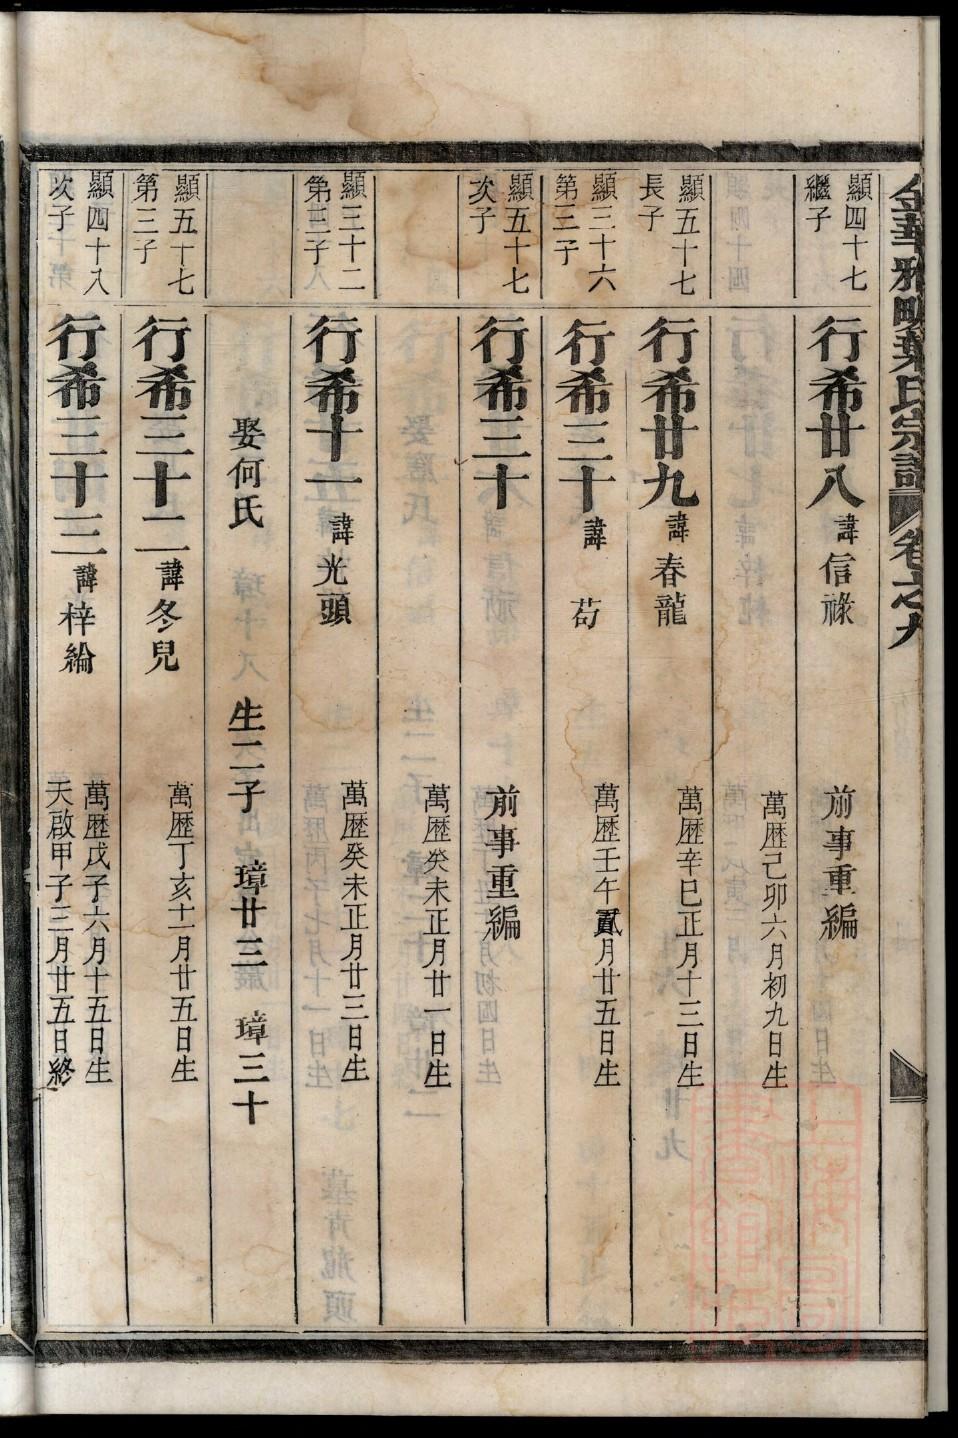 金華雅畈葉氏宗譜 卷之九
顯四十七
繼子
行希廿八 諱信祿 前事重編
萬歷己卯六月初九日生
顯五十七
長子
行希廿九 諱春龍 萬歷辛巳正月十三日生
顯三十六
第三子
行希三十 諱苟 萬歷壬午貳月廿五日生
顯五十七
次子
行希三十 前事重編
萬歷癸未正月廿一日生
顯三十二
第三子
行希十一 諱光頭 萬歷癸未正月廿三日生
娶何氏 生二子 璋廿三 璋三十
顯五十七
第三子
行希三十二 諱冬兒 萬歷丁亥十一月廿五日生
顯四十八
次子
行希三十三 諱梓綸 萬歷戊子六月十五日生
天啟甲子三月廿五日終